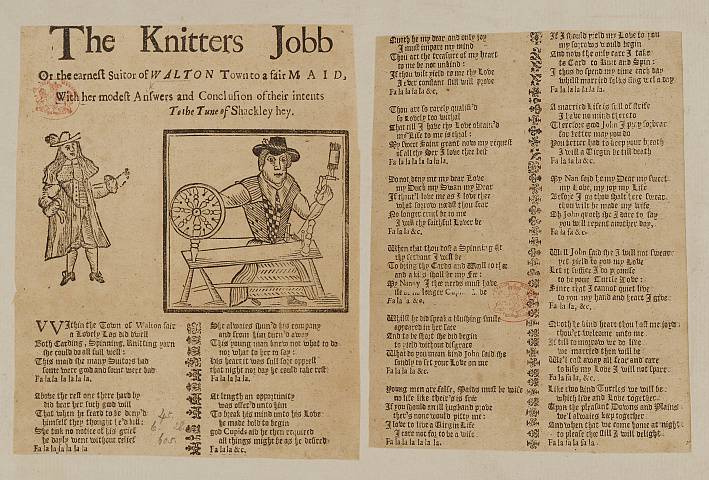 The Knitters Jobb
Or the earnest Suitor of WALTON Town to a fair MAID,
With her modest Answers and Conclusion of their intents
To the Tune of Shackley hey.
VVIthin the Town of Walton fair
a Lovely Lass did dwell
Both Carding, Spinning, Knitting yarn
she could do all full well:
This maid she many Suitors had
some were good and some were bad
Fa la la la la la.
Above the rest one there hard by
did bear her such good will
That when he feard to be deny'd
himself they thought he'd kill
She took no notice of his grief
he dayly went without relief
Fa la la la la la
She alwaies shun'd his company
and from him turn'd away
This young man knew not what to do
not what to her to say:
His heart it was full sore opprest
that night nor day he could take rest
Fa la la la la.
At length an opportunity
was offer'd unto him
To break his mind unto his Love
he made bold to begin
God Cupids aid he then required
all things might be as he desired
Fa la la &c.
Quoth he my dear and only joy
I must impare my mind
Thou art the treasure of my heart
to me be not unkind:
If thou wilt yield to me thy Love
I ever constant still will prove
Fa la la la la la.
Thou art so rarely qualifi'd
so Lovely too withal
That till I have thy Love obtain'd
my Life to me is thral:
My sweet Saint grant now my request
of all thy Sex I love thee best
Fa la la la la la la.
Do not deny me my dear Love
my Duck my Swan my Dear
If thou'lt love me as I love thee
what sorrow needst thou fear
No longer cruel be to me
I will thy faithful Lover be
Fa la la la &c.
When that thou dost a Spinning sit
thy servant I will be
To bring thy Cards and Wooll to thee
and a kiss shall be my Fee:
My Nanny I thee needs must have
Fa la la &c.
Whilst he did speak a blushing smile
appeared in her face
And to be short she did begin
to yield without disgrace
What do you mean kind John said she
fondly to set your Love on me
Fa la la la la la.
Young men are false, Maids must be wise
no life like their's is free
If you should an ill husband prove
there's none would pitty me:
I love to live a Virgin Life
I care not for to be a wife
Fa la la la la la.
If I should yield my Love to you
my sorrows would begin
And now the only care I take
is Card to Knit and Spin:
I thus do spend my time each day
whilst married folks sing wel a day
Fa la la la la &c.
A married Life is full of strife
I have no mind thereto
Therefore good John I pray forbear
for better may you do
You better had to keep your breath
I will a Virgin be till death
Fa la la la &c.
My Nan said he my Dear my sweet
my Love, my joy my Life
Before I go thou shalt here swear
thou wilt be made my wife
Oh John quoth she I dare to say
you will repent another day,
Fa la la &c.
Well John said she I will not swear
yet yield to you my Love
Let it suffice I do promise
to be your Turtle Dove:
Since that I cannot quiet live
to you my hand and heart I give
Fa la la, &c.
Quoth he kind heart thou hast me joyd
thou'rt welcome unto me
If till to morrow we do live
we married then will be
We'l cast away all fear and care
to kiss my Love I will not spare
Fa la la la, &c.
Like two kind Turtles we will be
which live and Love together
Upon the pleasant Downs and Plains
we'l alwaies keep together
And when that we come home at night
to please thee still I will delight
Fa la la la la.